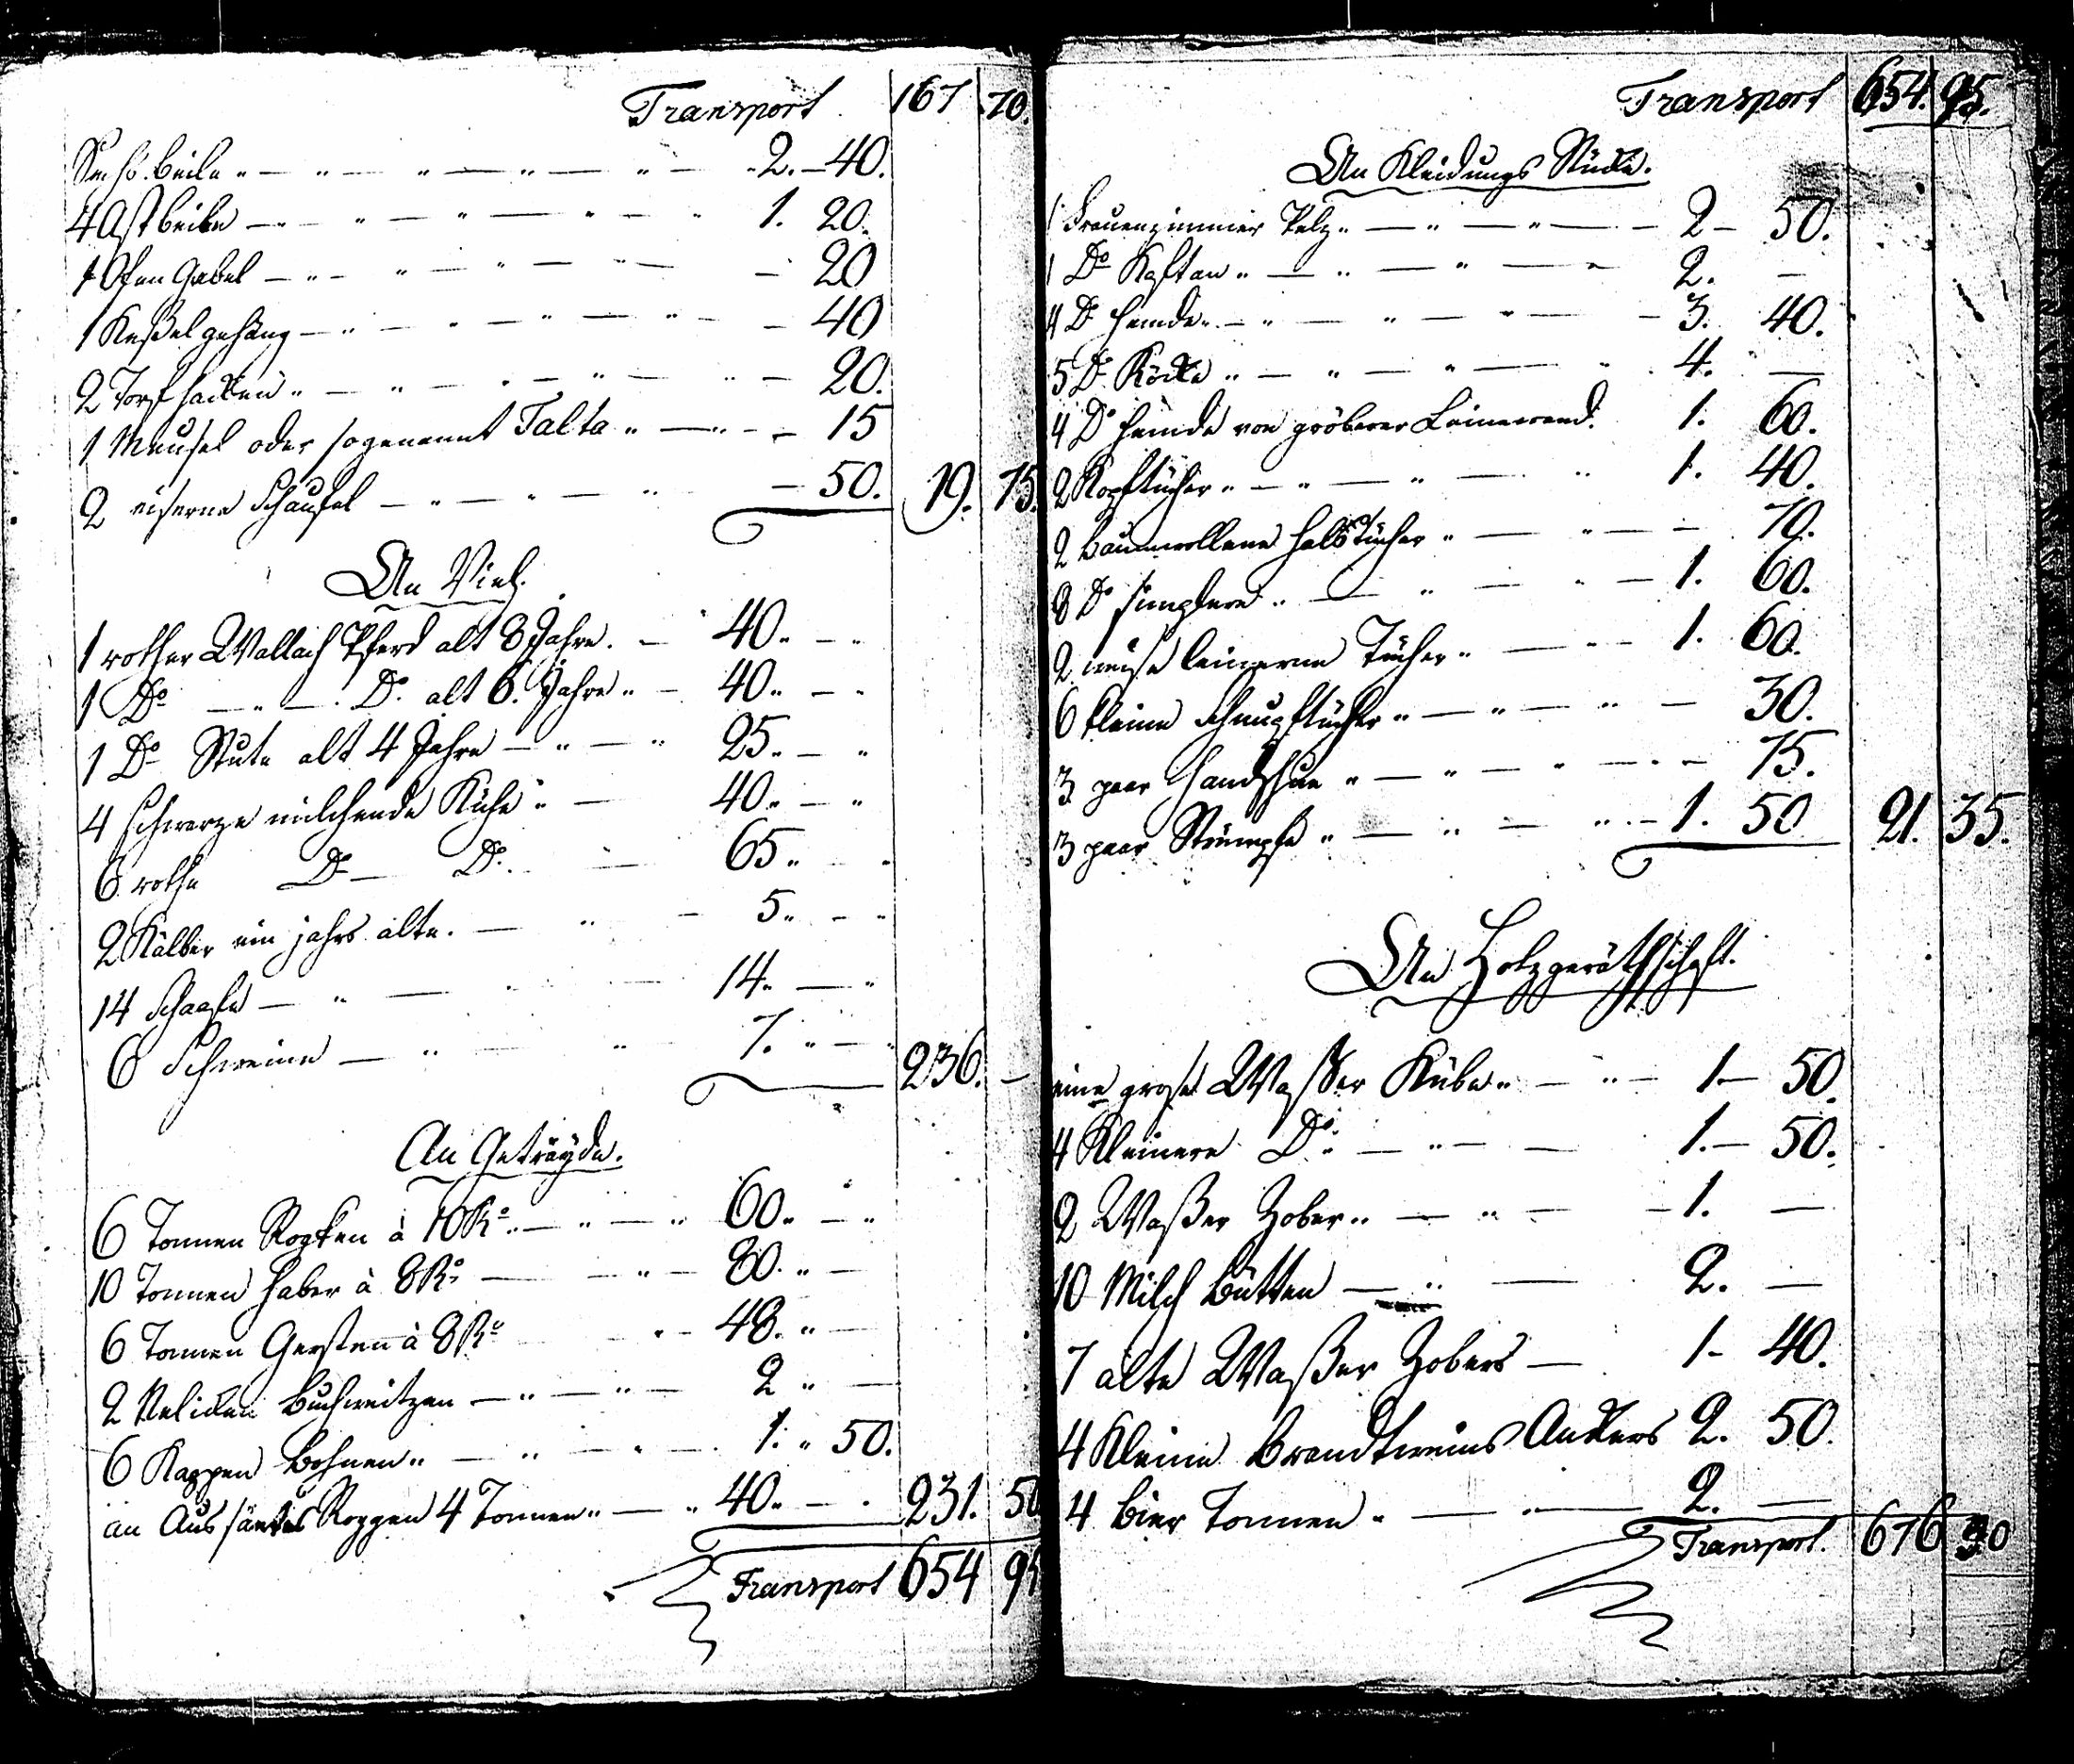 Transport 167 70.
Sechs Beile 2. 40.
4 Astbeile 1. 20.
1 Ofen Gabel 20
1 Keßelgehäng 40
2 Torfhacken 20.
1 Meusel oder sogenannt Talta 15
2 eiserne Schaufel 50. 19. 75.
An Vieh.
1 rother Wallach Pferd alt 8 Jahre. 40.
1 Do Do. alt 6. Jahre 40.
1 Do Stute alt 4 Jahre 25.
4 schwarze milchende Kühe 40.
6 rothe Do Do. 65.
2 Kälber ein jahrs alte. 5.
14 Schaafe 14.
6 Schweine 7. 236. —
An Getreyde.
6 Tonnen Rogken à 10 Ro. 60.
10 Tonnen Haber à 8 Ro 80.
6 Tonnen Gersten à 8 Ro 48.
2 Buchweitzen 2
6 Kappen Bohnen 1. 50.
an Roggen 4 Tonnen 40. 231. 50
Transport 654 95
Transport 654. 95.
An Kleidungs Stücke.
1 Frauenzimmer Pelz 2 - 50.
1 Do Kaftan 2. —
4 Do Hemde 3. 40.
5 Do Röcke 4. —
4 Do Hemde von gröberer Leinewand. 1. 60.
2 Kopftücher 1. 40.
2 baumwollene Halstücher 70.
8 Do simplere 1. 60.
2 weise leinerne Tücher 1. 60.
6 kleine Schnupftücher 30.
3 paar Handschue 75.
3 paar Strümpfe 1. 50 21. 35.
An Holzgeräthschaft.
eine grose Waßer Kübe 1 — 50.
4 Kleinere Do. 1. — 50.
2 Waßer Zober 1. —
10 Milch Bütten 2. —
7 alte Waßer Zobers 1 - 40.
4 Kleine Brandtweins Anckers 2. 50.
4 Bier Tonnen 2. —
Transport. 676 30